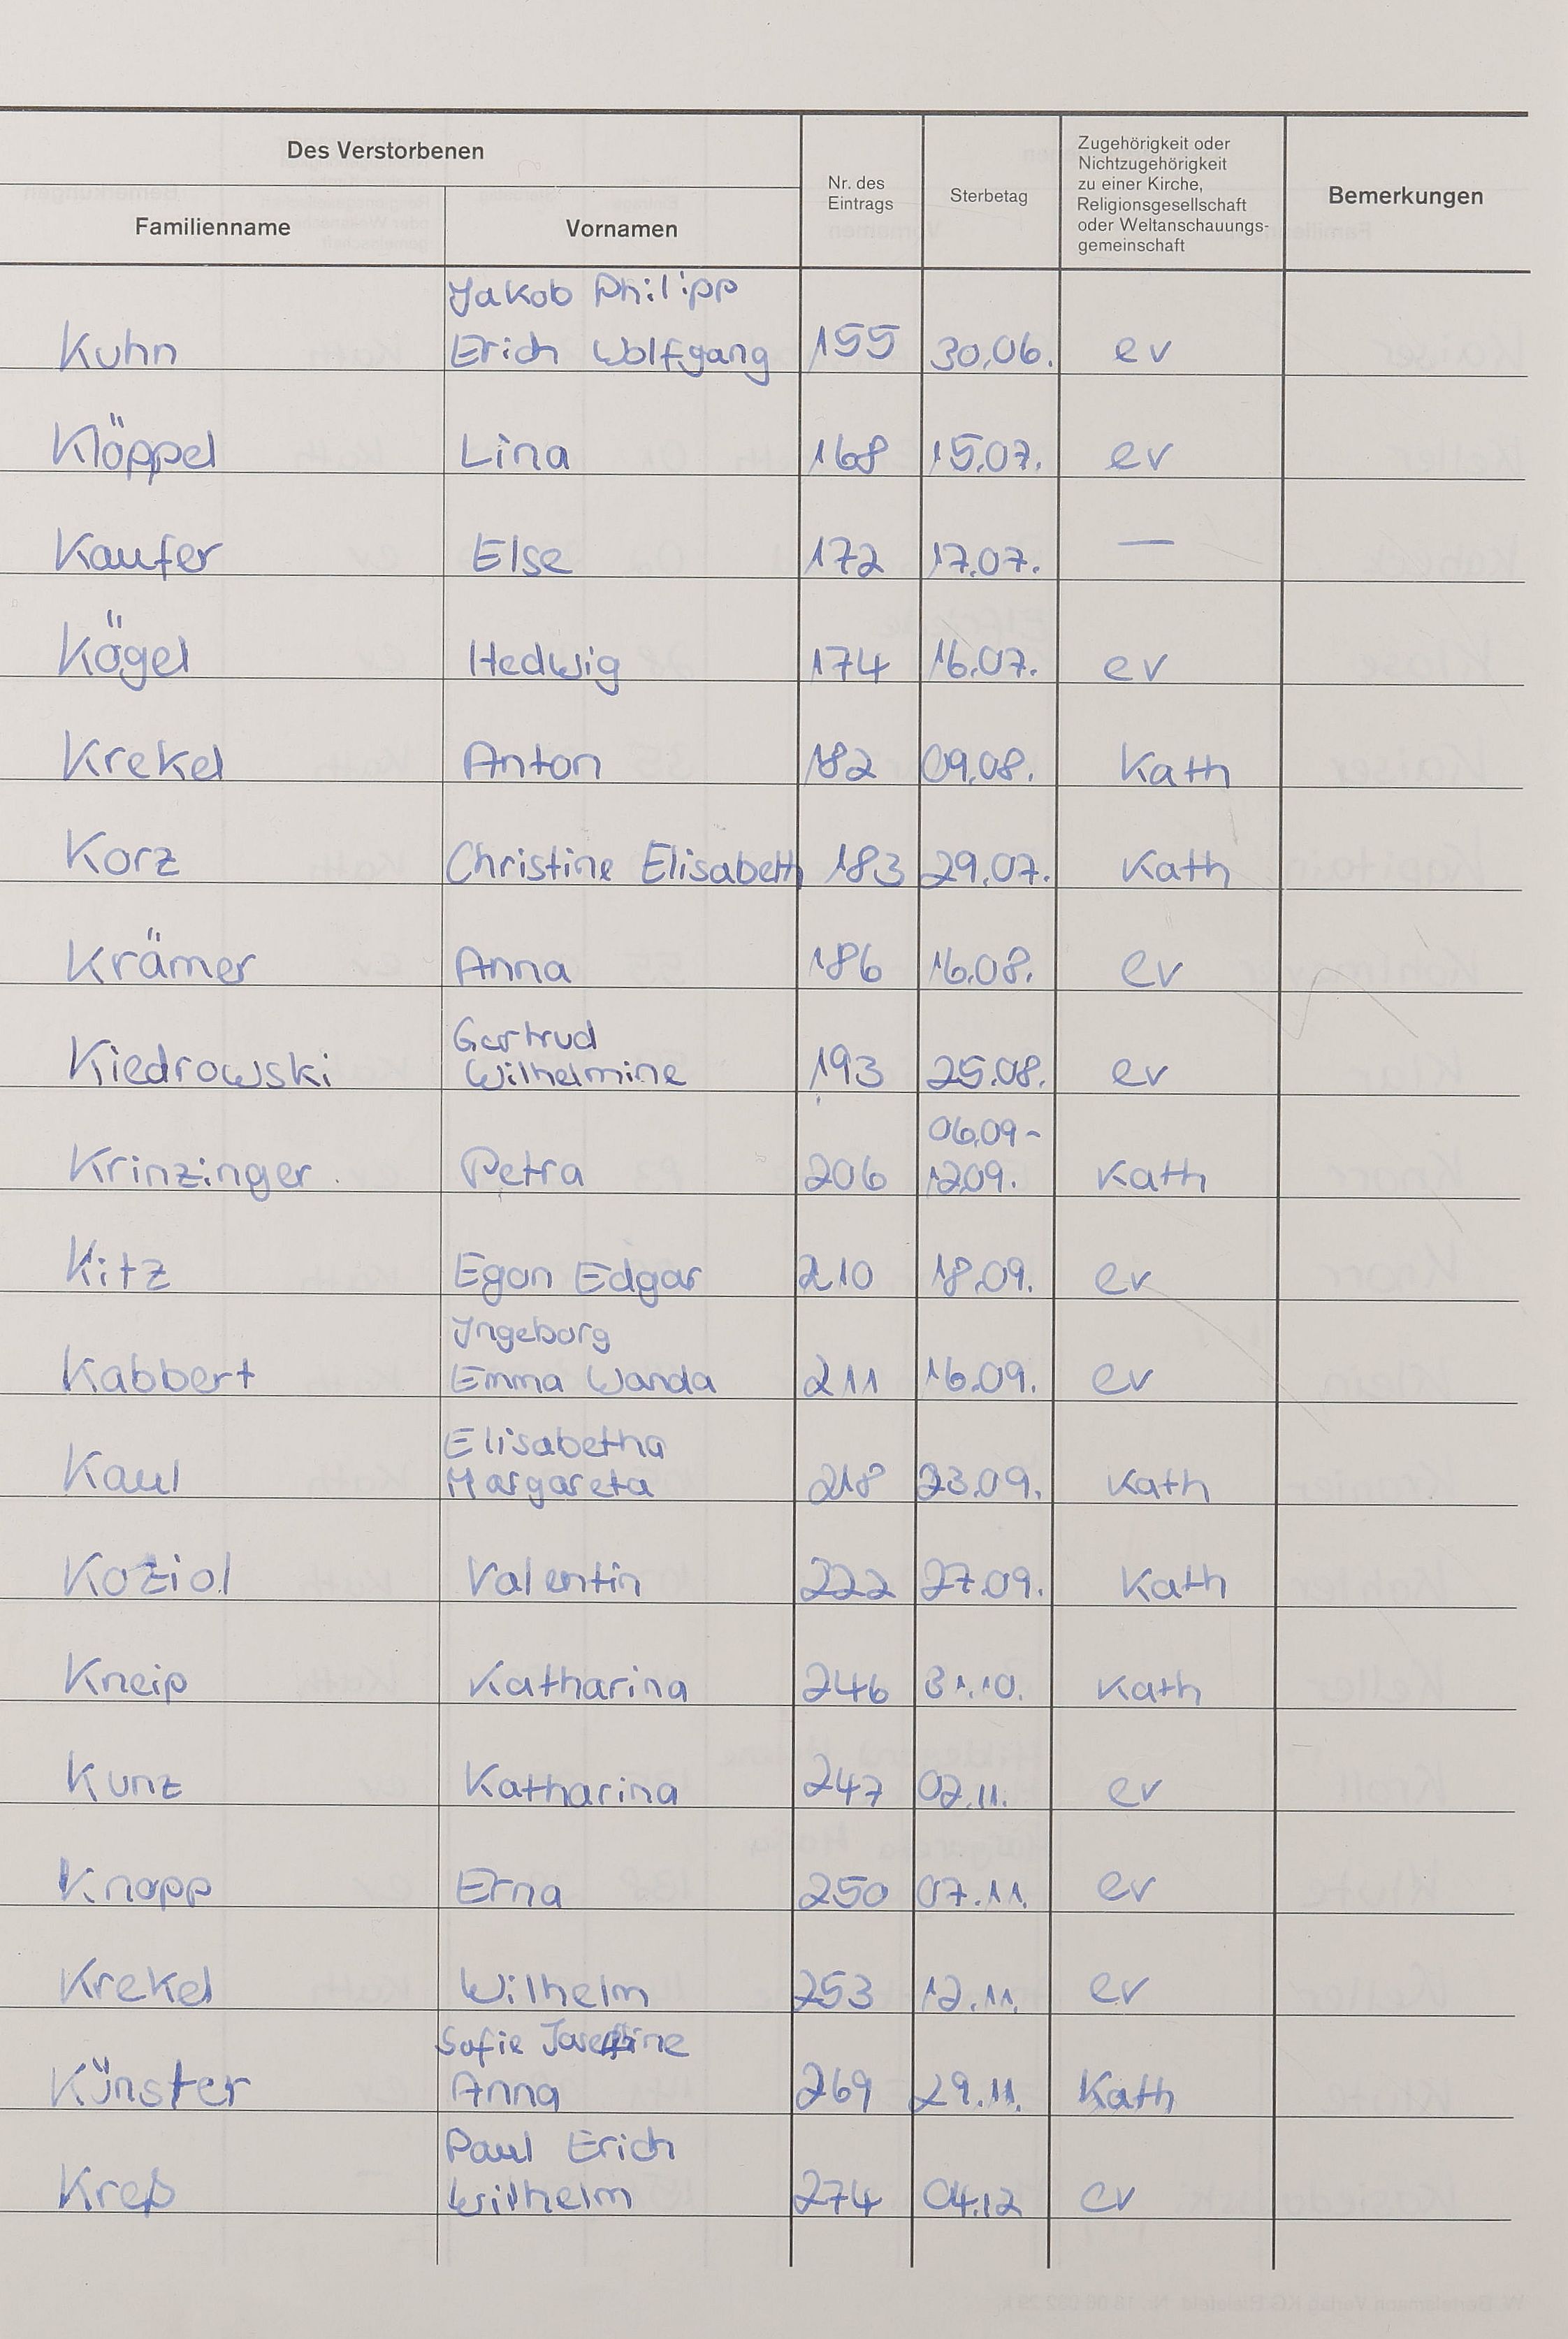 Des Verstorbenen
Familienname
Vornamen
Nr. des
Eintrags
Sterbetag
Zugehörigkeit oder
Nichtzugehörigkeit
zu einer Kirche,
Religionsgesellschaft
oder Weltanschauungs-
gemeinschaft
Bemerkungen
Jakob Philipp
Kuhn Erich Wolfgang 155 30.06. ev
Klöppel Lina 168 15.07. ev
Kaufer Else 172 17.07. —
Kögel Hedwig 174 16.07. ev
Krekel Anton 182 09.08. Kath
Korz Christine Elisabeth 183 29.07. Kath
Krämer Anna 186 16.08. ev
Gertrud
Kiedrowski Wilhelmine 193 25.08. ev
06.09-
Krinzinger Petra 206 12.09. Kath
Kitz Egon Edgar 210 18.09. ev
Ingeborg
Kabbert Emma Wanda 211 16.09. ev
Elisabetha
Kaul Margareta 218 23.09. Kath
Koziol Valentin 222 27.09. Kath
Kneip Katharina 246 31.10. Kath
Kunz Katharina 247 02.11. ev
Knapp Erna 250 07.11. ev
Krekel Wilhelm 253 12.11. ev
Sofie Josefine
Künster Anna 269 29.11. Kath
Paul Erich
Kreß Wilhelm 274 04.12 ev